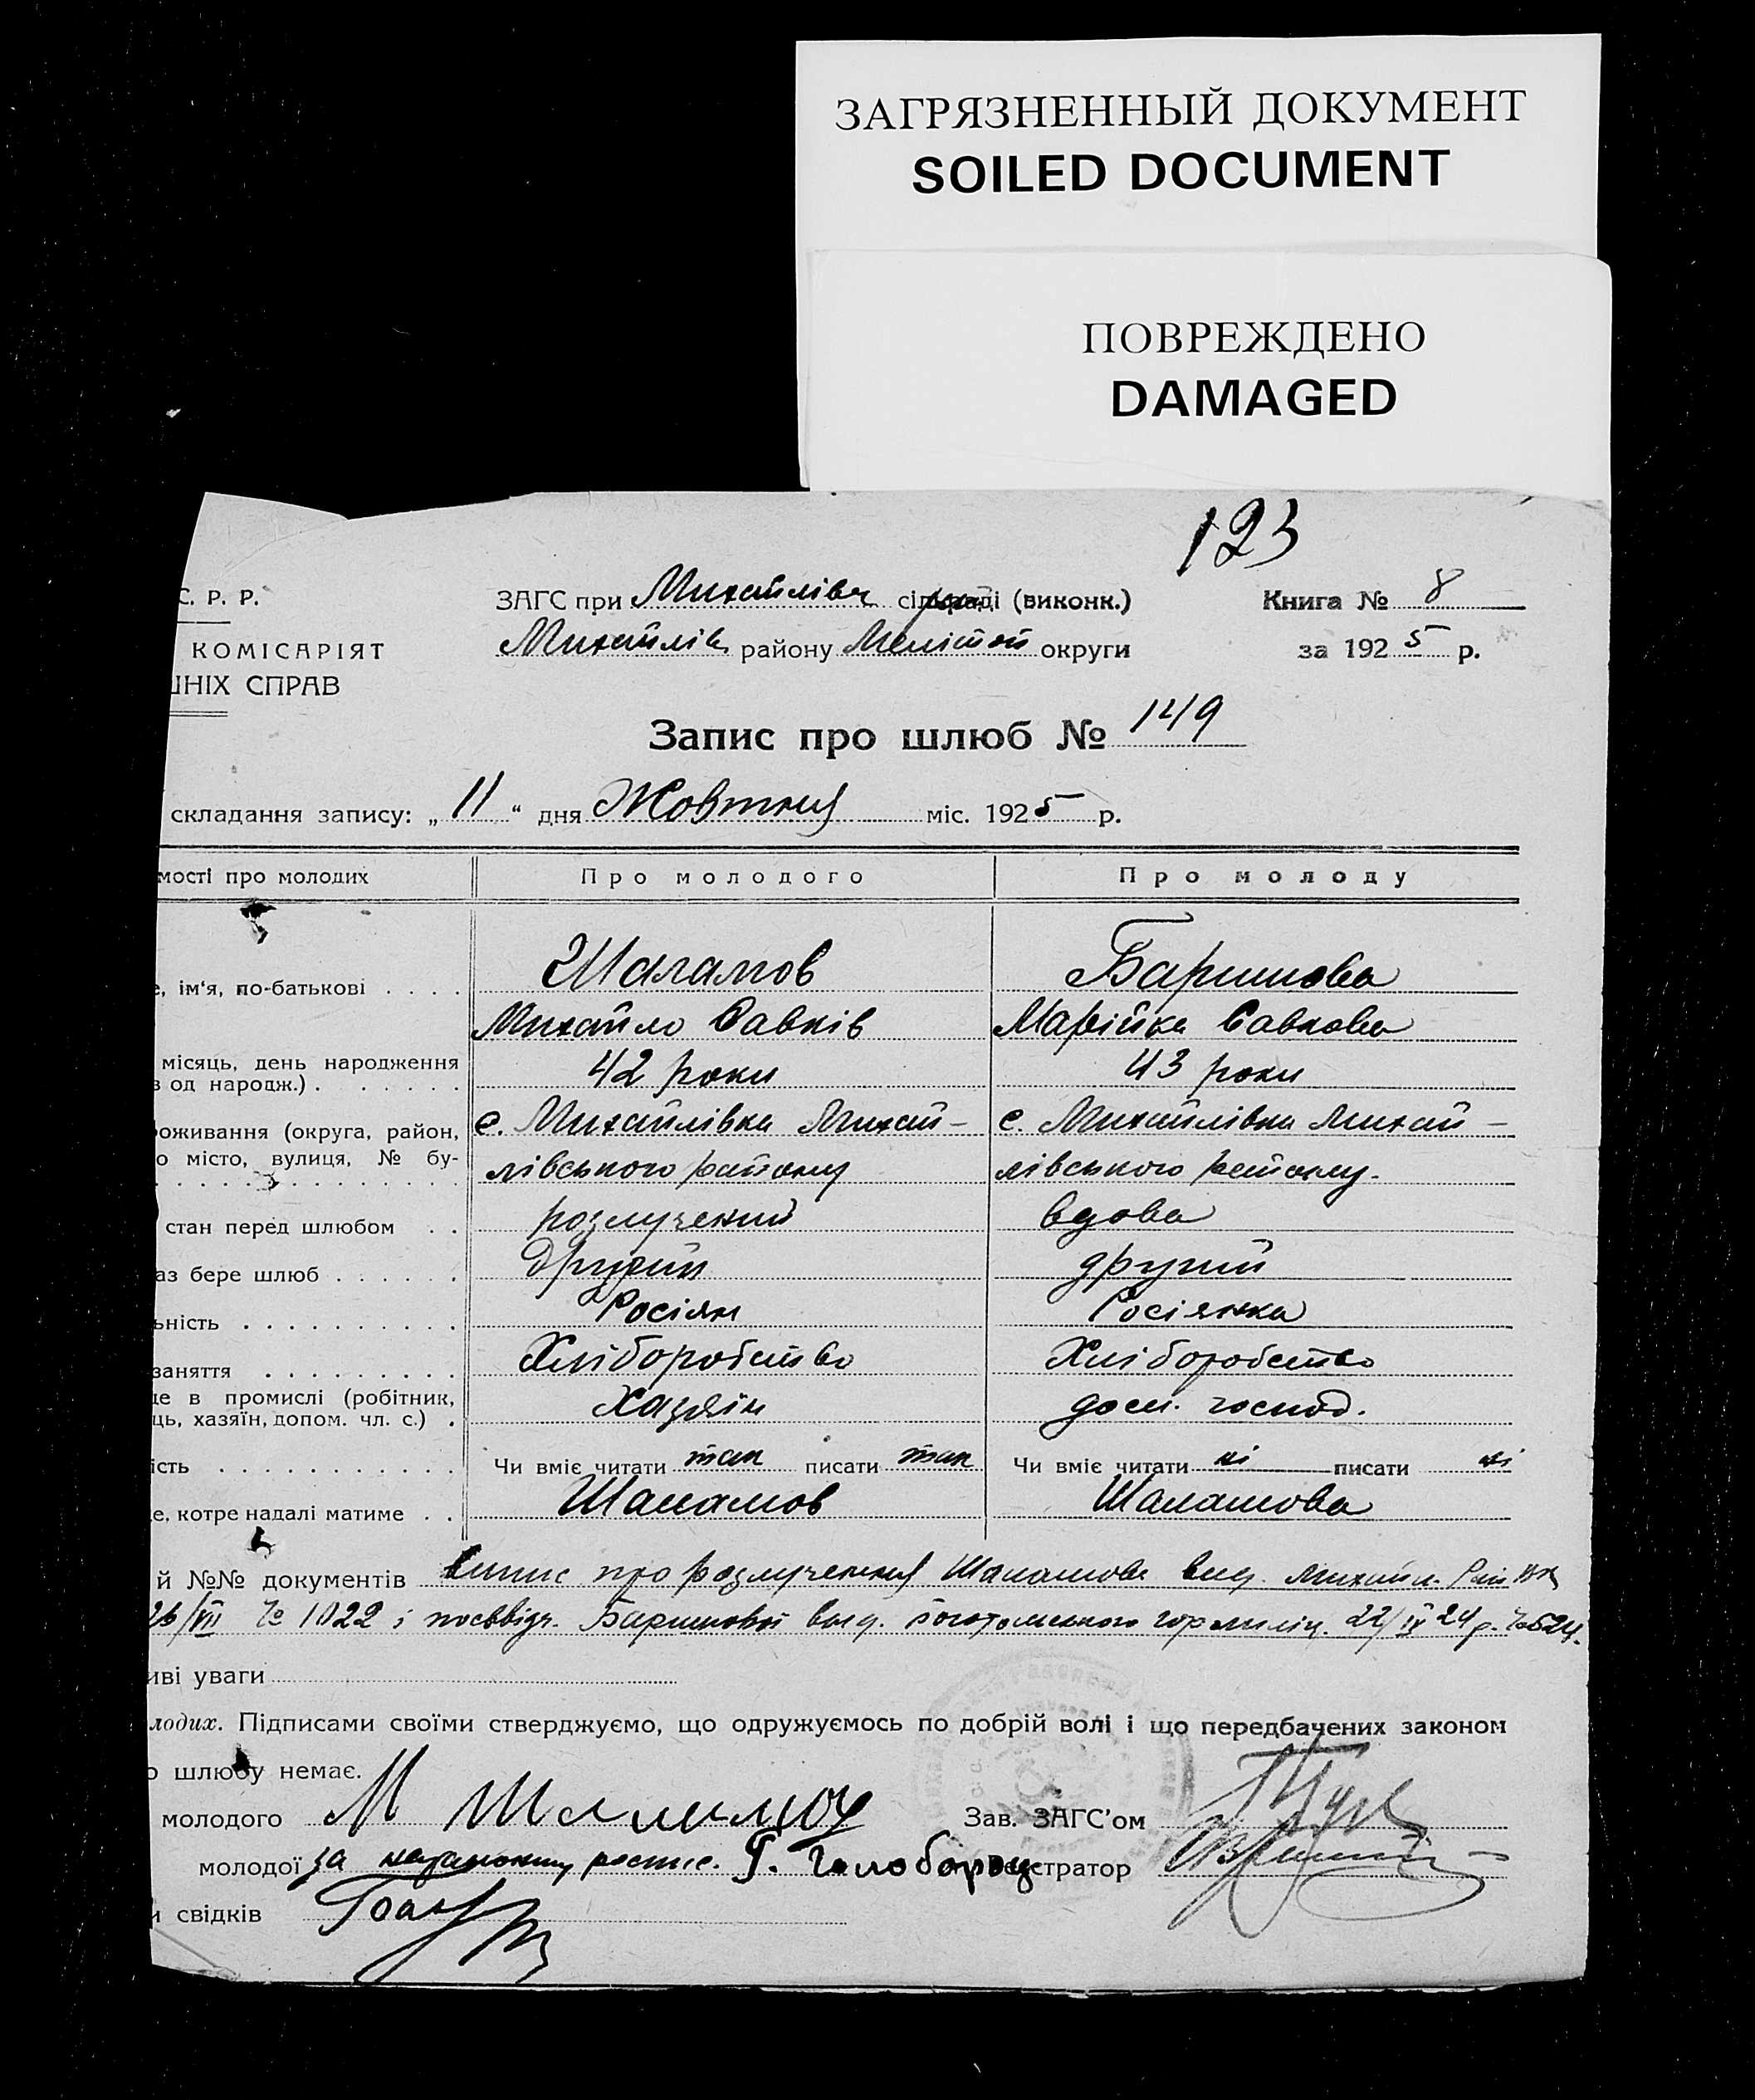 ЗАГРЯЗНЕННЫЙ ДОКУМЕНТ
SOILED DOCUMENT
ПОВРЕЖДЕНО
DAMAGED
123
С. Р. Р.
ЗАГС при Михайлівск сільраді (виконк.)
Книга № 8
КОМІСАРІЯТ
Михайлів району Меліт ой округи
за 1925 р.
ШНІХ СПРАВ
Запис про шлюб № 149
складання запису: „ 11 “ дня Жовтня міс. 1925 р.
мості про молодих Про молодого Про молоду
Шаламов Баришова
е, ім'я, по-батькові . . . .
Михайло Савків Марійка Савкова
місяць, день народження
в од народж.) . . . . . . 42 роки 43 роки
оживання (округа, район, с. Михайлівка Михай- с. Михайлівка Михай-
о місто, вулиця, № бу- лівського району лівського району.
стан перед шлюбом . . розлучений вдова
аз бере шлюб . . . . . . Другий другий
ьність . . . . . . . . . . Росіян Росіянка
заняття . . . . . . . . . Хліборобство Хліборобство
це в промислі (робітник,
ць, хазяїн, допом. чл. с.) . Хазяїн дом. господ.
ість . . . . . . . . . . . Чи вміє читати так писати так Чи вміє читати ні писати ні
е, котре надалі матиме . . Шаламов Шаламова
й №№ документів випис про розлучення Шаламова вид. Михайл. Рай ВК
26/VII № 1022 і посвідч. Баришової вид. міліц. 22/IX 24 р. № 524.
иві уваги
лодих. Підписами своїми стверджуємо, що одружуємось по добрій волі і що передбачених законом
о шлюбу немає.
молодого М Шаламов Зав. ЗАГС'ом
молодої за неграмотну распис. Г. Голобород реєстратор
и свідків